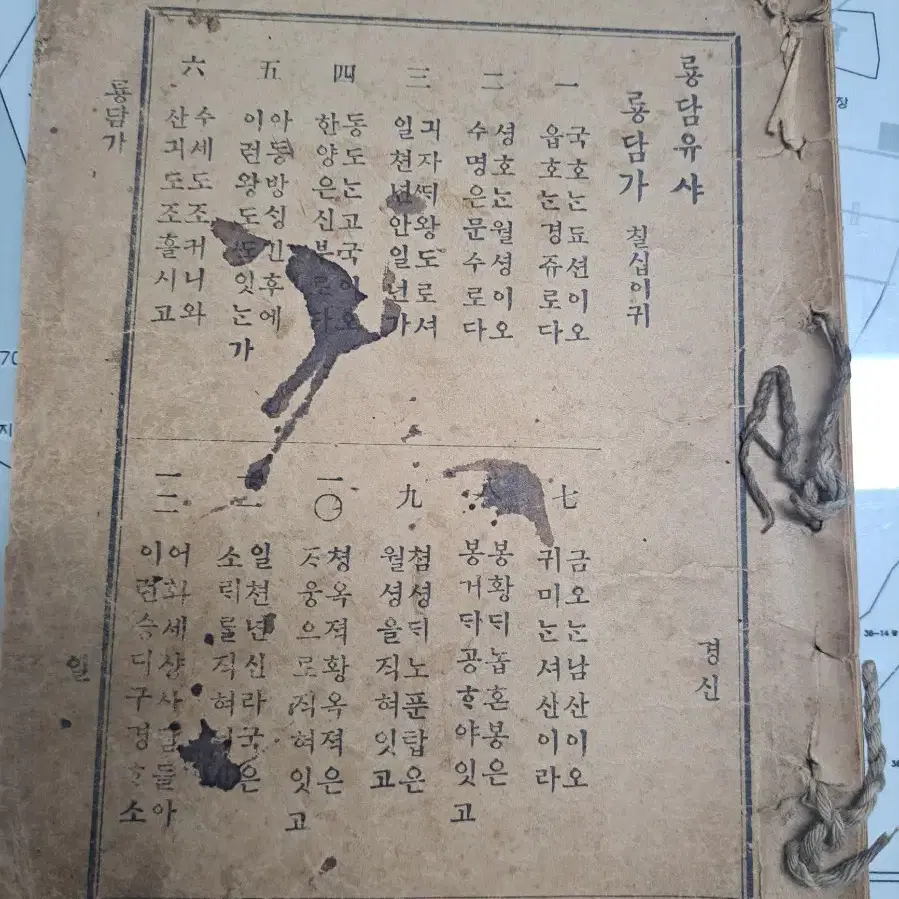 룡담유샤
경신
룡담가 칠십이귀
一
국호ᄂᆞᆫ됴션이오
읍호ᄂᆞᆫ경쥬로다
二
셩호ᄂᆞᆫ월셩이오
수명은문수로다
三
긔자ᄯᅢ왕도로셔
일쳔년안일넌가
四
동도ᄂᆞᆫ고국이오
한양은신부로다
五
아동방ᄉᆡᆼ긴후에
이런왕도ᄯᅩ잇ᄂᆞᆫ가
六
수세도조커니와
산긔도조흘시고
七
금오ᄂᆞᆫ남산이오
귀미ᄂᆞᆫ셔산이라
八
봉황ᄃᆡ놉흔봉은
봉거ᄃᆡ공ᄒᆞ야잇고
九
쳠셩ᄃᆡ노푼탑은
월셩을직혀잇고
一〇
쳥옥져황옥져은
ᄌᆞ웅으로직혀잇고
일쳔년신라국은
一二
어화세샹사람들아
이런승디구경ᄒᆞ소
룡담가
일